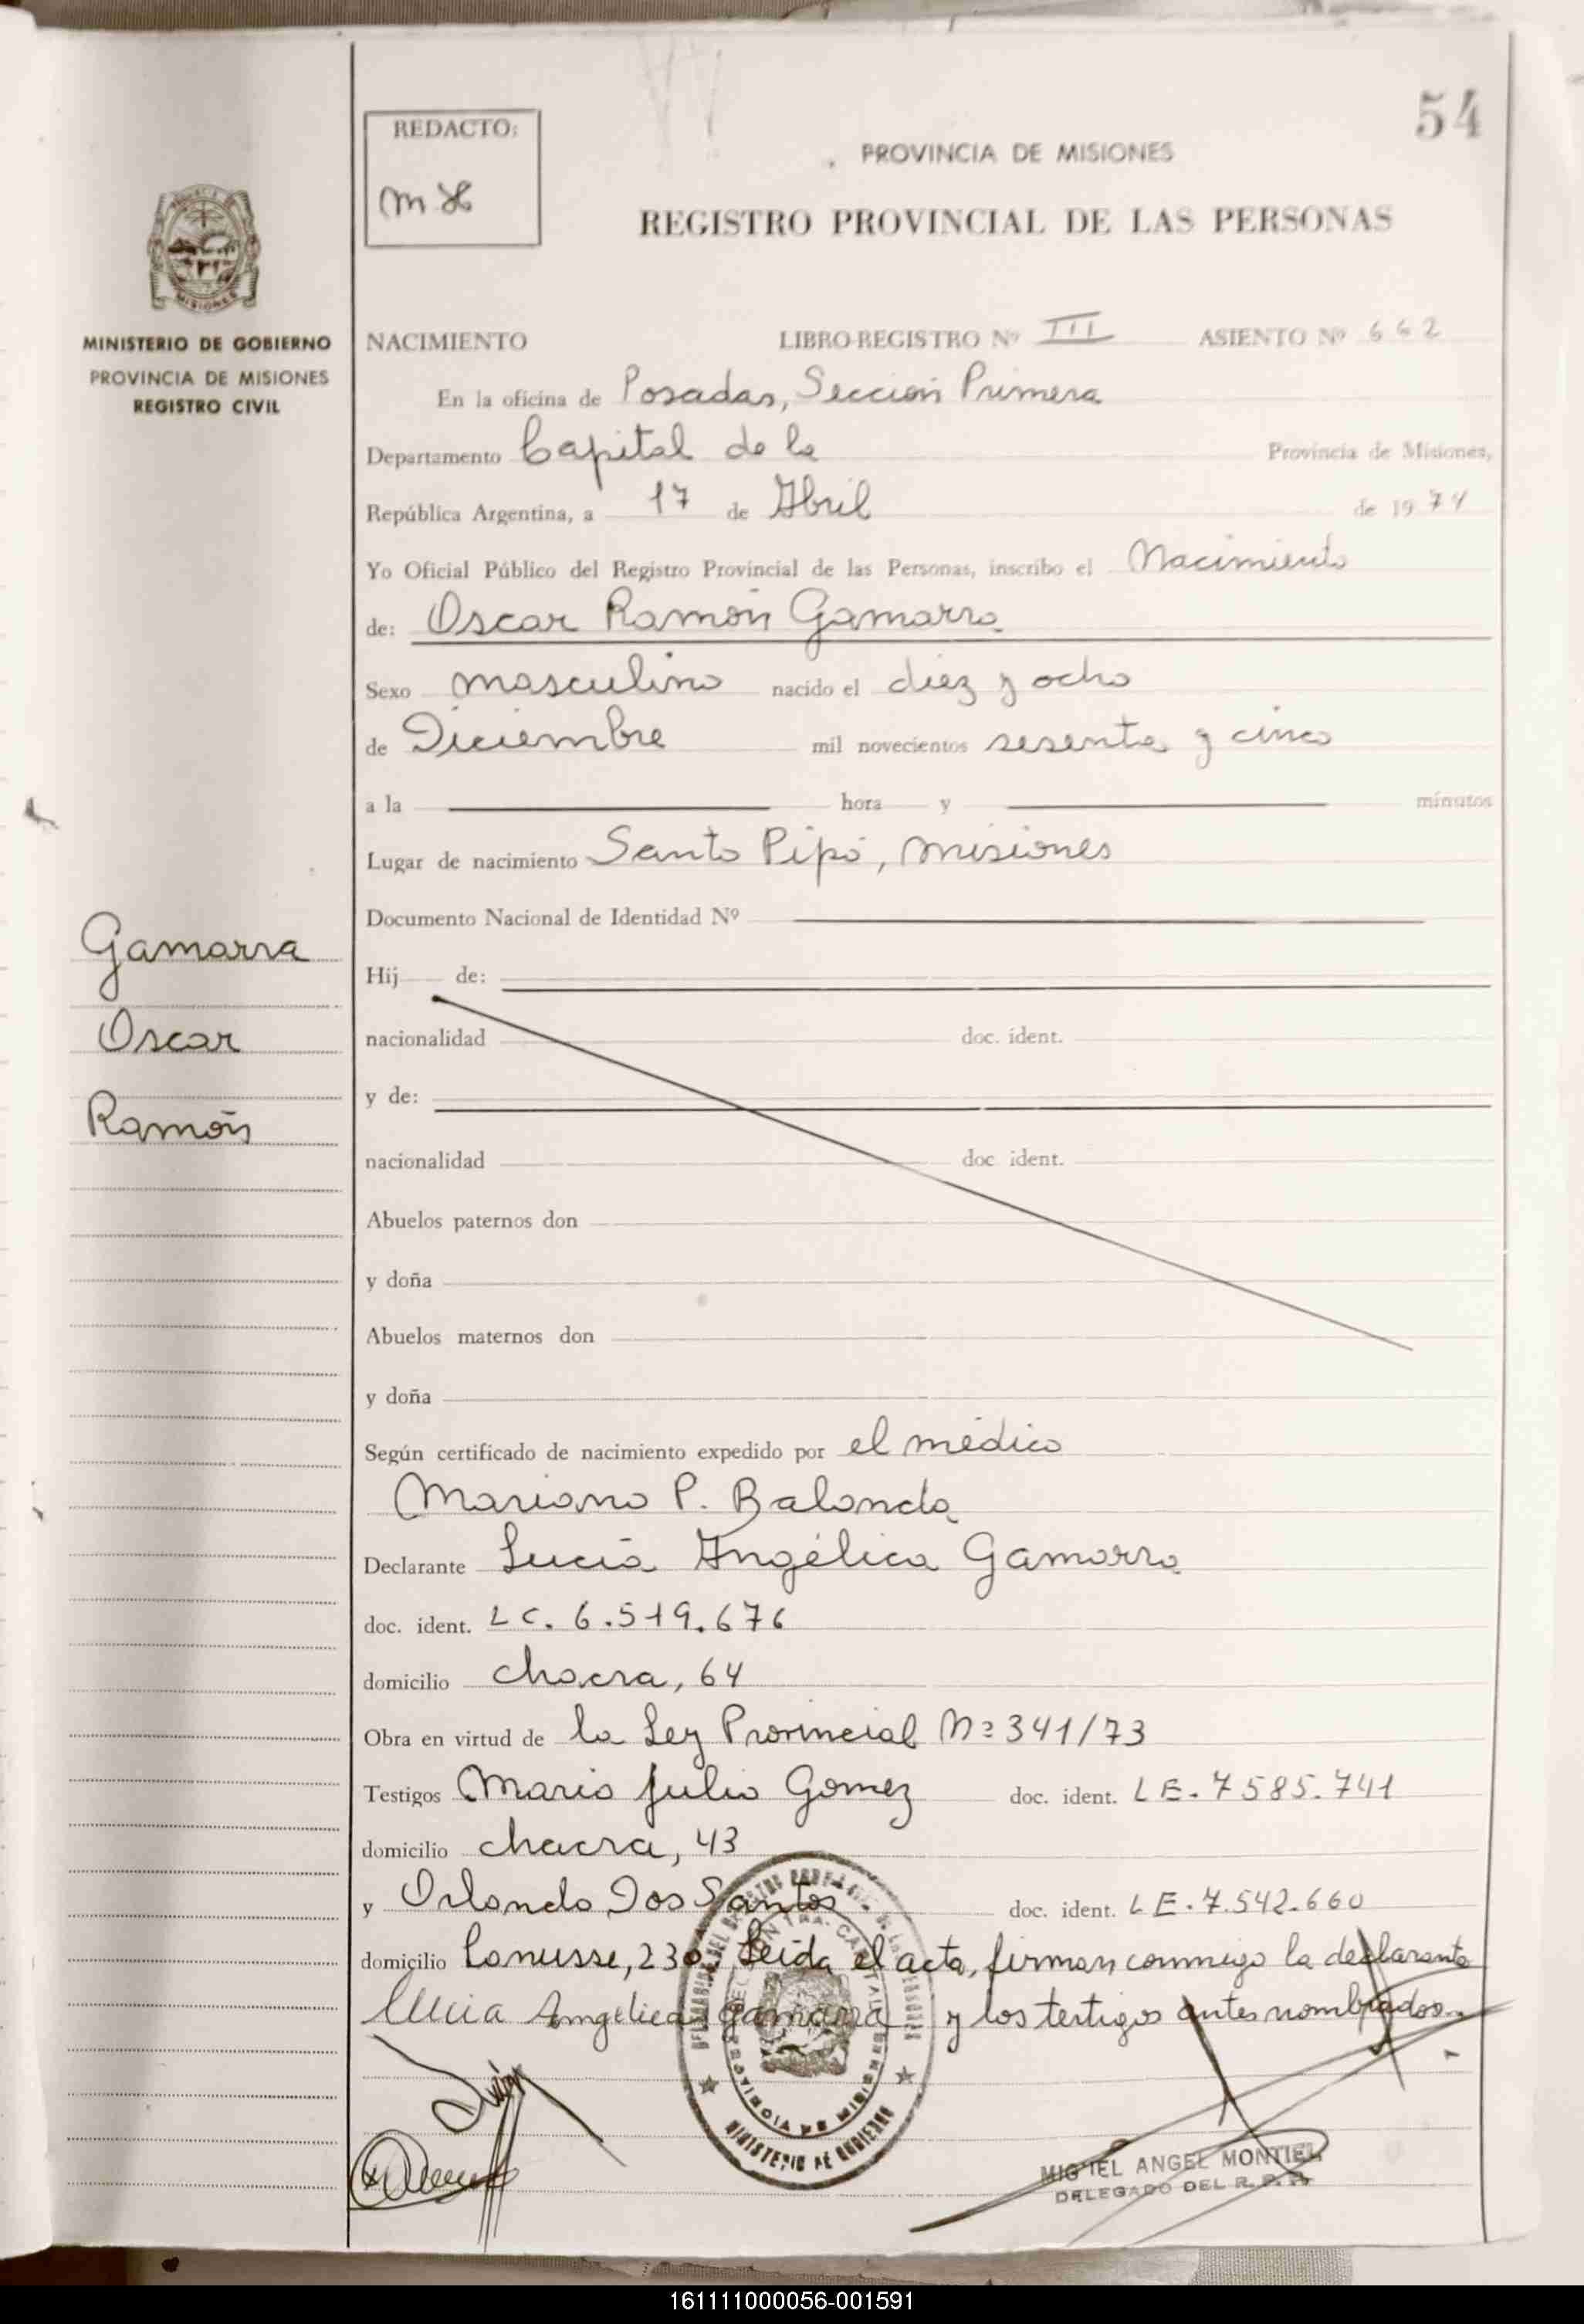 54
REDACTO:
PROVINCIA DE MISIONES
REGISTRO PROVINCIAL DE LAS PERSONAS
MISIONES
MINISTERIO DE GOBIERNO
PROVINCIA DE MISIONES
REGISTRO CIVIL
NACIMIENTO LIBRO-REGISTRO Nº III ASIENTO Nº 662
En la oficina de Posadas, Sección Primera
Departamento Capital de la Provincia de Misiones,
República Argentina, a 17 de Abril de 1974
Yo Oficial Público del Registro Provincial de las Personas, inscribo el Nacimiento
de: Oscar Ramón Gamarra
Sexo masculino nacido el diez y ocho
de Diciembre mil novecientos sesenta y cinco
a la hora y minutos
Lugar de nacimiento Santo Pipó, Misiones
Documento Nacional de Identidad Nº
Gamarra
Oscar
Ramón
Hij de:
nacionalidad doc. ident.
y de:
nacionalidad doc. ident.
Abuelos paternos don
y doña
Abuelos maternos don
y doña
Según certificado de nacimiento expedido por el médico
Mariano P. Balanda
Declarante Lucía Angélica Gamarra
doc. ident. LC. 6.519.676
domicilio chacra, 64
Obra en virtud de la Ley Provincial Nº 341/73
Testigos Mario Julio Gomez doc. ident. LE. 7585.741
domicilio chacra, 43
y Orlando Dos Santos doc. ident. LE. 7.542.660
domicilio Lanusse, 230. Leida el acta, firman conmigo la declarante
Lucia Angelica Gamarra y los testigos antes nombrados.
MINISTERIO DE GOBIERNO
PROVINCIA DE MISIONES
MIGUEL ANGEL MONTIEL
DELEGADO DEL R. P. P.
161111000056-001591